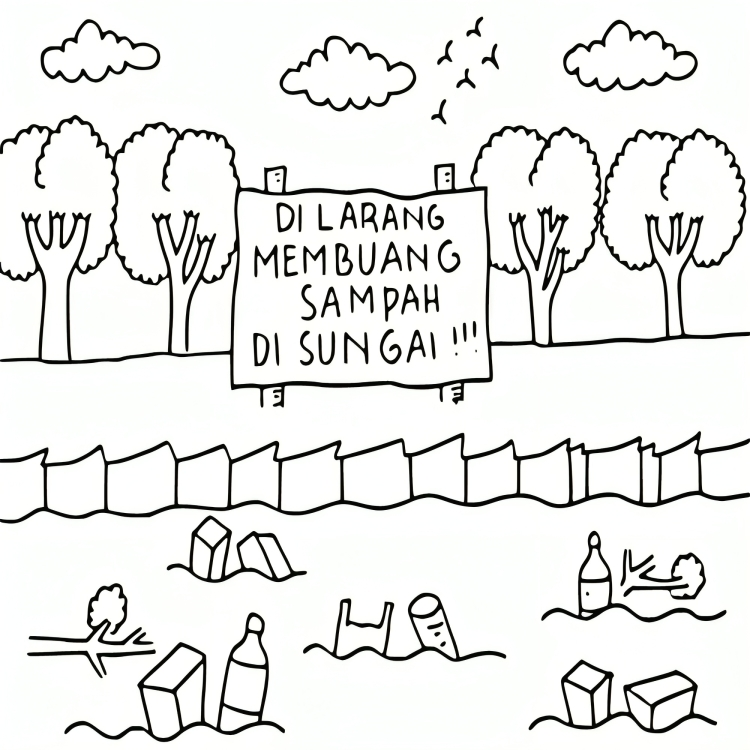 DI LARANG
MEMBUANG
SAMPAH
DI SUNGAI !!!